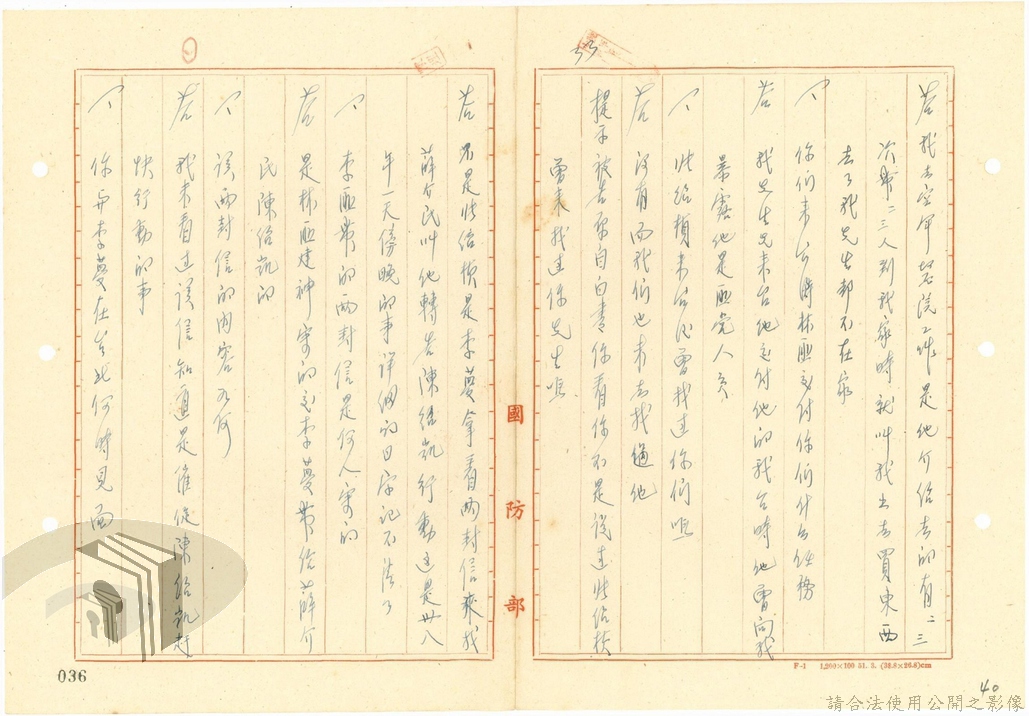 答 我去空軍醫院工作是他介紹去的有二三
次時二三人到我家時就叫我出去買東西
去了我先生都不在家
問 你們來台時林匪交付你們什么任務
答 我先生先來台他交付他的我台時他曾向我
暴露他是匪党人員
問 張紹楨來台後曾找过你們嗎
答 沒有而我們也未去找過他
提示被告原自白書你看你不是說过張紹楨
曾來找过你先生嗎
答 不是張紹楨是李蔓拿着兩封信來找
薛介民叫他轉告陳紹凱行動这是卅八
年一天傍晚的事詳細的日字記不清了
問 李匪帶的兩封信是何人寄的
答 是林匪建神寄的交李蔓帶給薛介
民陳紹凱的
問 該兩封信的內容为何
答 我未看过該信知道是催促陳紹凱赶
快行動的事
問 你与李蔓在台北何時見面
國防部
F-1 1,200×100 51. 3. (38.8×26.8)cm
036
40
請合法使用公開之影像